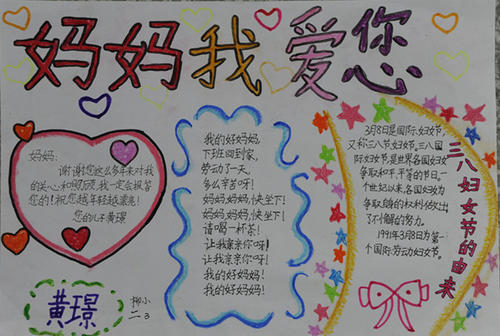 妈妈我爱您
妈妈:
谢谢您这么多年来对我
的关心和照顾,我一定会报答
您的!祝您越年轻越漂亮!
您的儿子黄璟
我的好妈妈,
下班回到家,
劳动了一天,
多么辛苦呀!
妈妈妈妈,快坐下!
妈妈,妈妈,快坐下!
请喝一杯茶!
让我亲亲你呀!
让我亲亲你呀!
我的好妈妈!
我的好妈妈!
3月8日是国际妇女节,
又称三八节妇女节,三八国
际妇女节,是世界各国妇女
争取和平,平等的节日,一
个世纪以来,各国妇为
争取够的权利做出
了不懈的努力。
1991年3月8日为第一
个国际劳动妇女节。
三八妇女节的由来
黄璟
柳小
二3